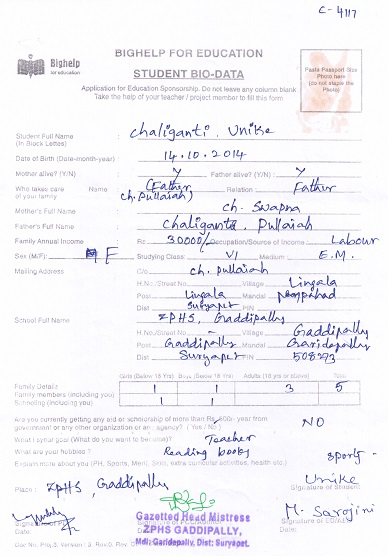 C-4117
Bighelp
for education
BIGHELP FOR EDUCATION
STUDENT BIO-DATA
Application for Education Sponsorship. Do not leave any column blank
Take the help of your teacher / project member to fill this form
Paste Passport Size
Photo here
(do not staple the
Photo)
Student Full Name : Chaliganti. Unike
(In Block Letters)
Date of Birth (Date-month-year) : 14.10.2014
Mother alive? (Y/N) : Y Father alive? (Y/N) : Y
Who takes care Name : (Father Relation : Father
of your family ch. Pullaiah)
Mother's Full Name : ch. Swapna
Father's Full Name : Chaliganti. Pullaiah
Family Annual Income : Rs. 30000/- Occupation/Source of Income : Labour
Sex (M/F) : F Studying Class : VI Medium : E.M.
Mailing Address : C/o ch. pullaiah
H.No./Street No. Village Lingala
Post Lingala Mandal
Dist Suryapet PIN
School Full Name : ZPHS, Gaddipally
H.No./Street No. - Village Gaddipally
Post Gaddipally Mandal Garidepally
Dist Suryapet PIN 508293
Girls (Below 18 Yrs) Boys (Below 18 Yrs) Adults (18 yrs or above) Total
Family Details
Family members (including you) 1 1 3 5
Schooling (including you) 1 1
Are you currently getting any aid or scholarship of more than Rs. 500/- year from
government or any other organization or an agency? (Yes / No) : NO
What is your goal (What do you want to become)? Teacher
What are your hobbies? Reading books sports -
Explain more about you (PH, Sports, Merit, Skill, extra curricular activities, health etc.)
Place : ZPHS, Gaddipally
Unike
Signature of Student
M. Sarojini
Gazetted Head Mistress
ZPHS GADDIPALLY,
Mdl: Garidepally, Dist: Suryapet.